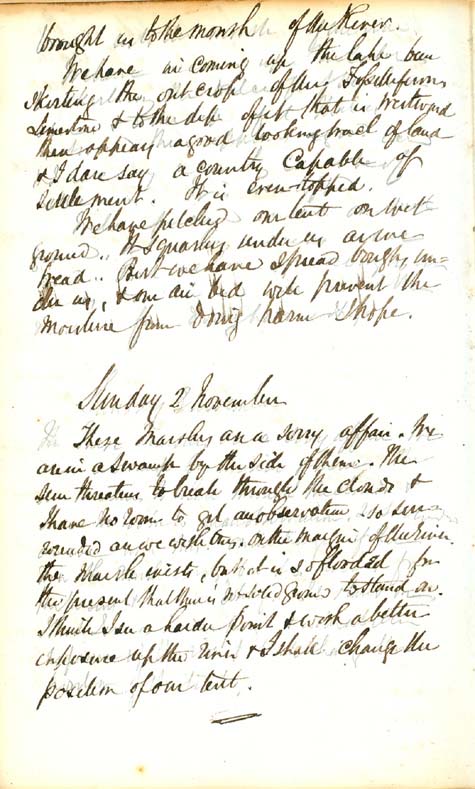 brought us to the mouth of the River.
We have in coming up the lake been
skirting the out crop of this Fossiliferous
Limestone & to the dip of it that is Westward
there appears a good looking tract of land
& I dare say a country Capable of
settlement. It is even-topped.
We have pitched our tent on wet
ground. It squashes under us as we
tread. But we have spread boughs un=
der us, & our air bed will prevent the
moisture from doing harm I hope.
Sunday 2 November
These Marshes are a sorry affair. We
are in a swamp by the side of them. The
sun threatens to break through the clouds &
I have no room to get an observation so sur=
rounded are we with trees. On the margin of the River
the Marsh exists, but it is so flooded for
the present that there is no solid ground to stand on.
I think I see a harder point & with a better
exposure up the river & I shall change the
position of our tent.